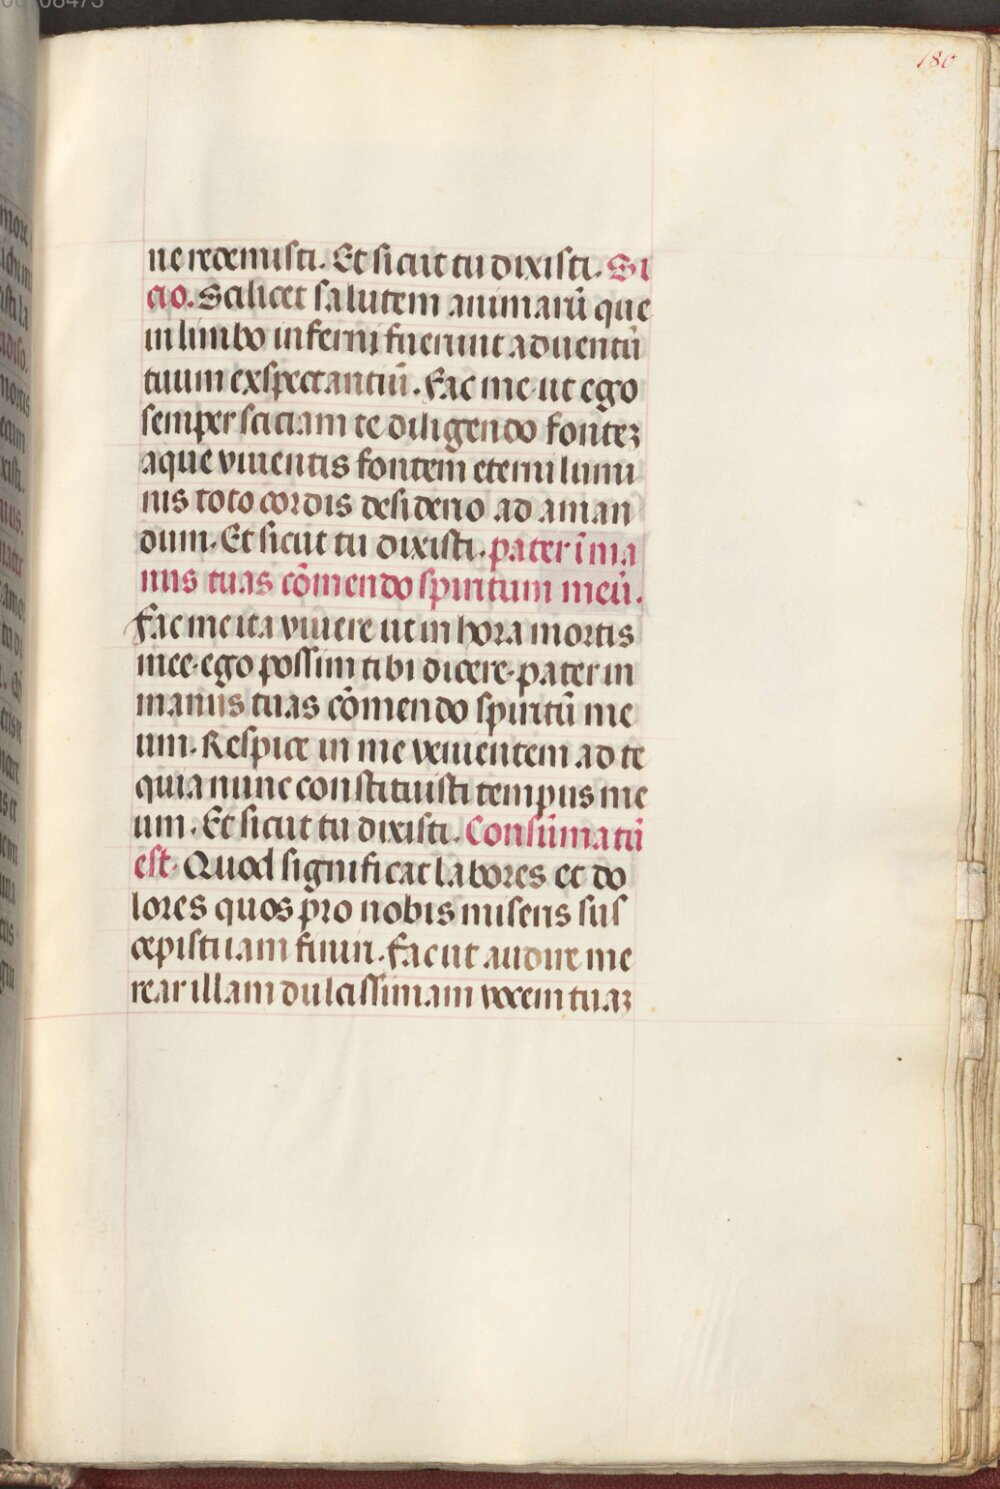 180
ne redemisti. Et sicut tu dixisti. Si
cio. Scilicet salutem animarū que
in limbo inferni fuerunt aduentū
tuum exspectantiū. Fac me ut ego
semper sciciam te diligendo fonteȝ
aque viuentis fontem eterni lumi
nis toto cordis desiderio ad aman
dum. Et sicut tu dixisti. pater ī ma
nus tuas cōmendo spiritum meū.
Fac me ita viuere ut in hora mortis
mee. ego possim tibi dicere. pater in
manus tuas cōmendo spiritū me
um. Respice in me venientem ad te
quia nunc constituisti tempus me
um. Et sicut tu dixisti. Consūmatū
est. Quod significat labores et do
lores quos pro nobis miseris sus
cepisti iam finiri. Fac ut audire me
rear illam dulcissimam vocem tuaȝ